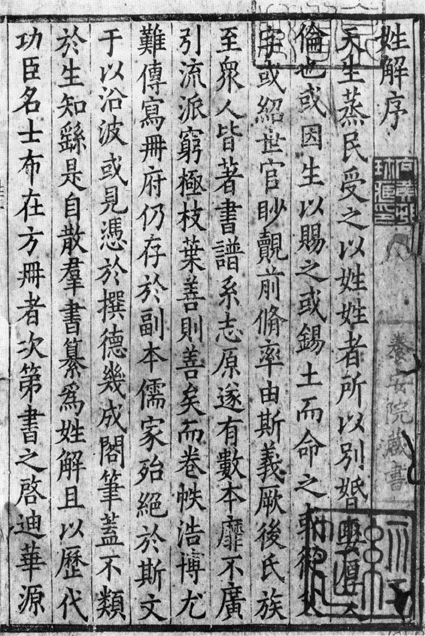 姓解序
天生蒸民受之以姓姓者所以別婚厚人
倫也或因生以賜之或錫土而命之
字或紹世官眇覿前脩率由斯義厥後氏族
至衆人皆著書譜系志原遂有數本靡不廣
引流派窮極枝葉善則善矣而卷帙浩博尤
難傳寫冊府仍存於副本儒家殆絕於斯文
于以沿波或見憑於撰德幾成閣筆蓋不類
於生知繇是自散羣書纂爲姓解且以歷代
功臣名士布在方冊者次第書之啓迪華源
養安院藏書